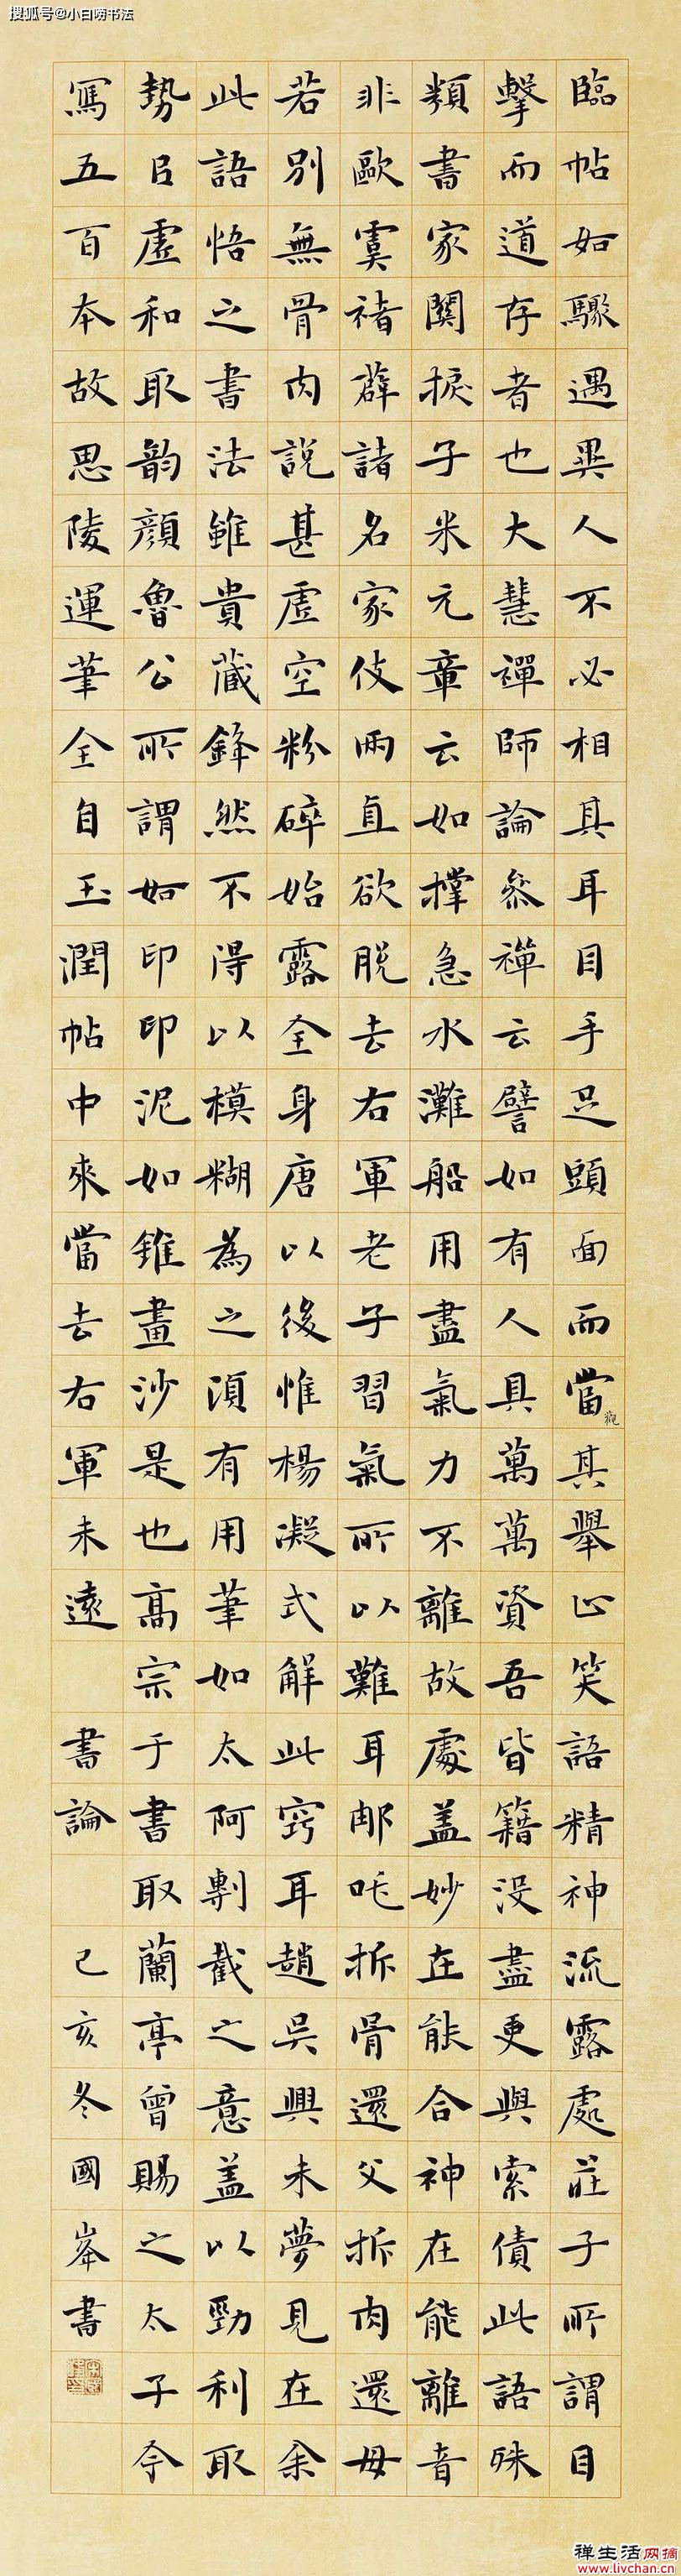 搜狐号@小白唠书法
臨帖如驟遇異人不必相其耳目手足頭面而當觀其舉止笑語精神流露處莊子所謂目
擊而道存者也大慧禪師論參禪云譬如有人具萬萬資吾皆籍没盡更與索債此語殊
類書家關捩子米元章云如撑急水灘船用盡氣力不離故處蓋妙在能合神在能離音
非歐虞褚薛諸名家伎兩直欲脱去右軍老子習氣所以難耳那吒拆骨還父拆肉還母
若別無骨肉説甚虛空粉碎始露全身唐以後惟楊凝式解此竅耳趙吳興未夢見在余
此語悟之書法雖貴藏鋒然不得以模糊為之須有用筆如太阿剸截之意蓋以勁利取
勢以虛和取韵顔魯公所謂如印印泥如錐畫沙是也高宗于書取蘭亭曾賜之太子令
寫五百本故思陵運筆全自玉潤帖中來當去右軍未遠
書論
己亥冬國峯書
禅生活网摘
www.livchan.cn